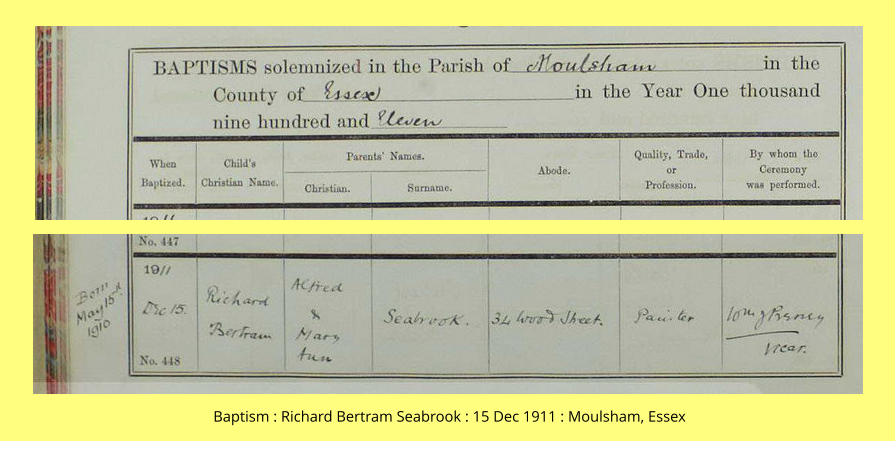 BAPTISMS solemnized in the Parish of Moulsham in the
County of Essex in the Year One thousand
nine hundred and Eleven
When Baptized.
Child's Christian Name.
Parents' Names.
Christian.
Surname.
Abode.
Quality, Trade, or Profession.
By whom the Ceremony was performed.
1911
No. 447
Born
May 15th
1910
1911
Dec 15.
No. 448
Richard
Bertram
Alfred
&
Mary
Ann
Seabrook.
34 Wood Street.
Painter
Vicar.
Baptism : Richard Bertram Seabrook : 15 Dec 1911 : Moulsham, Essex